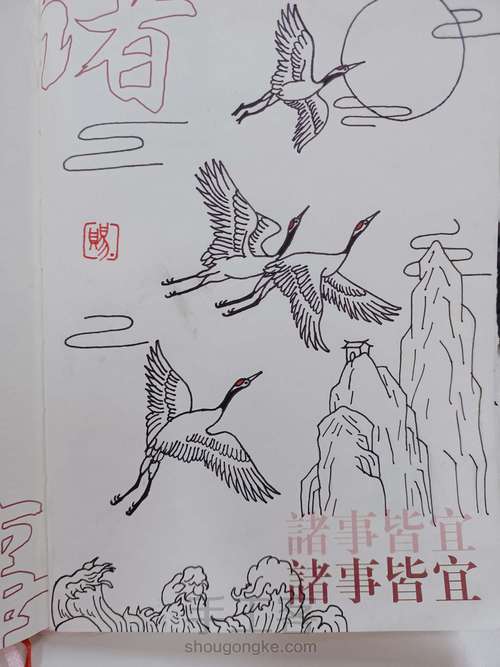 賜
諸事皆宜
諸事皆宜
shougongke.com